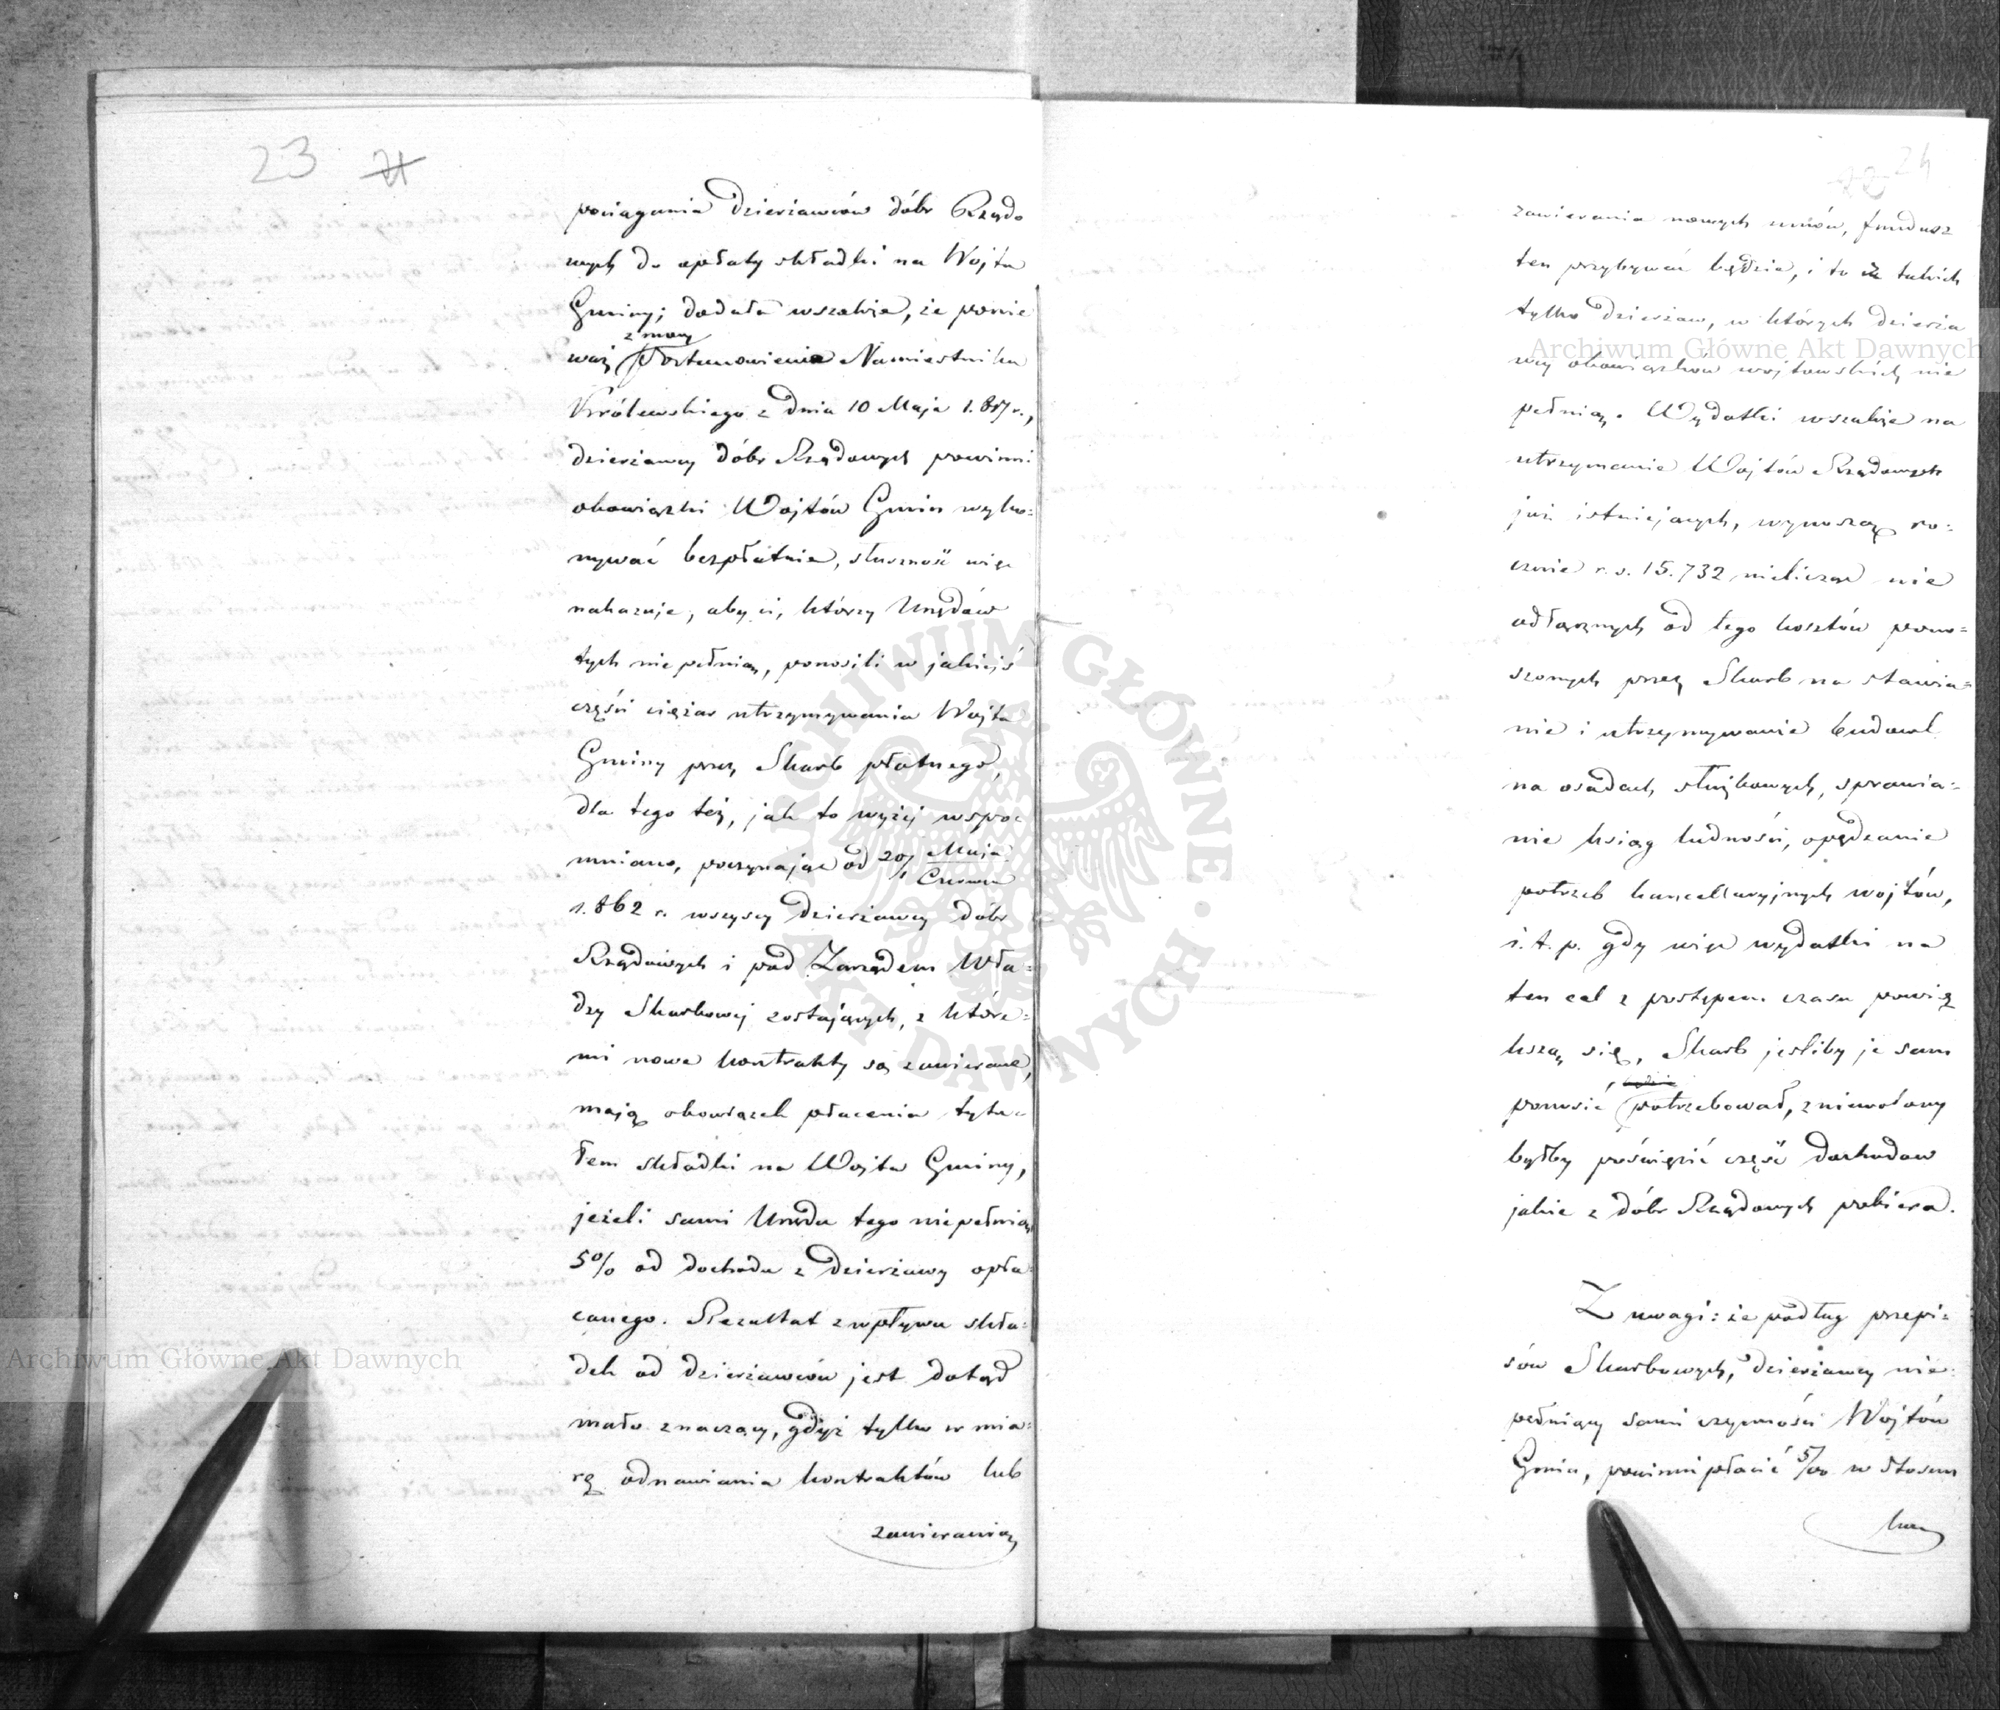 23 21
pociągania Dzierżawców dóbr Rządo
wych do opłaty składki na Wójta
Gminy; dodała wszakże, że ponie
z mocy
waż Postanowienia Namiestnika
Królewskiego z Dnia 10 Maja 1.817 r.,
dzierżawcy dóbr Rządowych powinni
obowiązki Wójtów Gmin wyko-
nywać bezpłatnie, słuszność więc
nakazuje, aby ci, którzy Urzędów
tych nie pełnią, ponosili w jakiejś
części ciężar utrzymywania Wójta
Gminy przez Skarb płatnego,
dla tego też, jak to wyżej wspo-
mniano, poczynając od 20/1 Maja/Czerwca
1.862 r. wszyscy Dzierżawcy dóbr
Rządowych i pod Zarządem Wła-
dzy Skarbowej zostających, z które-
mi nowe kontrakty są zawierane,
mają obowiązek płacenia tytu-
łem składki na Wójta Gminy,
jeżeli sami Urzędu tego niepełnią
5% od dochodu z Dzierżawy opła
canego. Rezultat z wpływu skła-
dek od dzierżawców jest dotąd
mało znaczący, gdyż tylko w mia-
rę odnawiania kontraktów lub
zawierania
24
zawierania nowych umów, fundusz
ten przybywać będzie, i to z takich
tylko Dzierżaw, w których dzierża
wcy obowiązków wójtowskich nie
pełnią. Wydatki wszakże na
utrzymanie Wójtów Rządowych
już istniejących, wynoszą ro-
cznie r.s. 15.732, nielicząc nie
odłącznych od tego kosztów pono-
szonych przez Skarb na stawia-
nie i utrzymywanie budowl
na osadach służbowych, sprawia-
nie ksiąg ludności, opędzanie
potrzeb kancellaryjnych wójtów,
i.t.p. gdy więc wydatki na
ten cel z postępem czasu powię
kszą się, Skarb jeśliby je sam
ponosić potrzebował, zniewolony
byłby poświęcić część dochodów
jakie z dóbr Rządowych pobiera.
Z uwagi: że podług przepi-
sów Skarbowych, dzierżawcy nie-
pełniący sami czynności Wójtów
Gmin, powinni płacić 5/00 w stosun
ku
Archiwum Główne Akt Dawnych
Archiwum Główne Akt Dawnych
ARCHIWUM GŁÓWNE AKT DAWNYCH